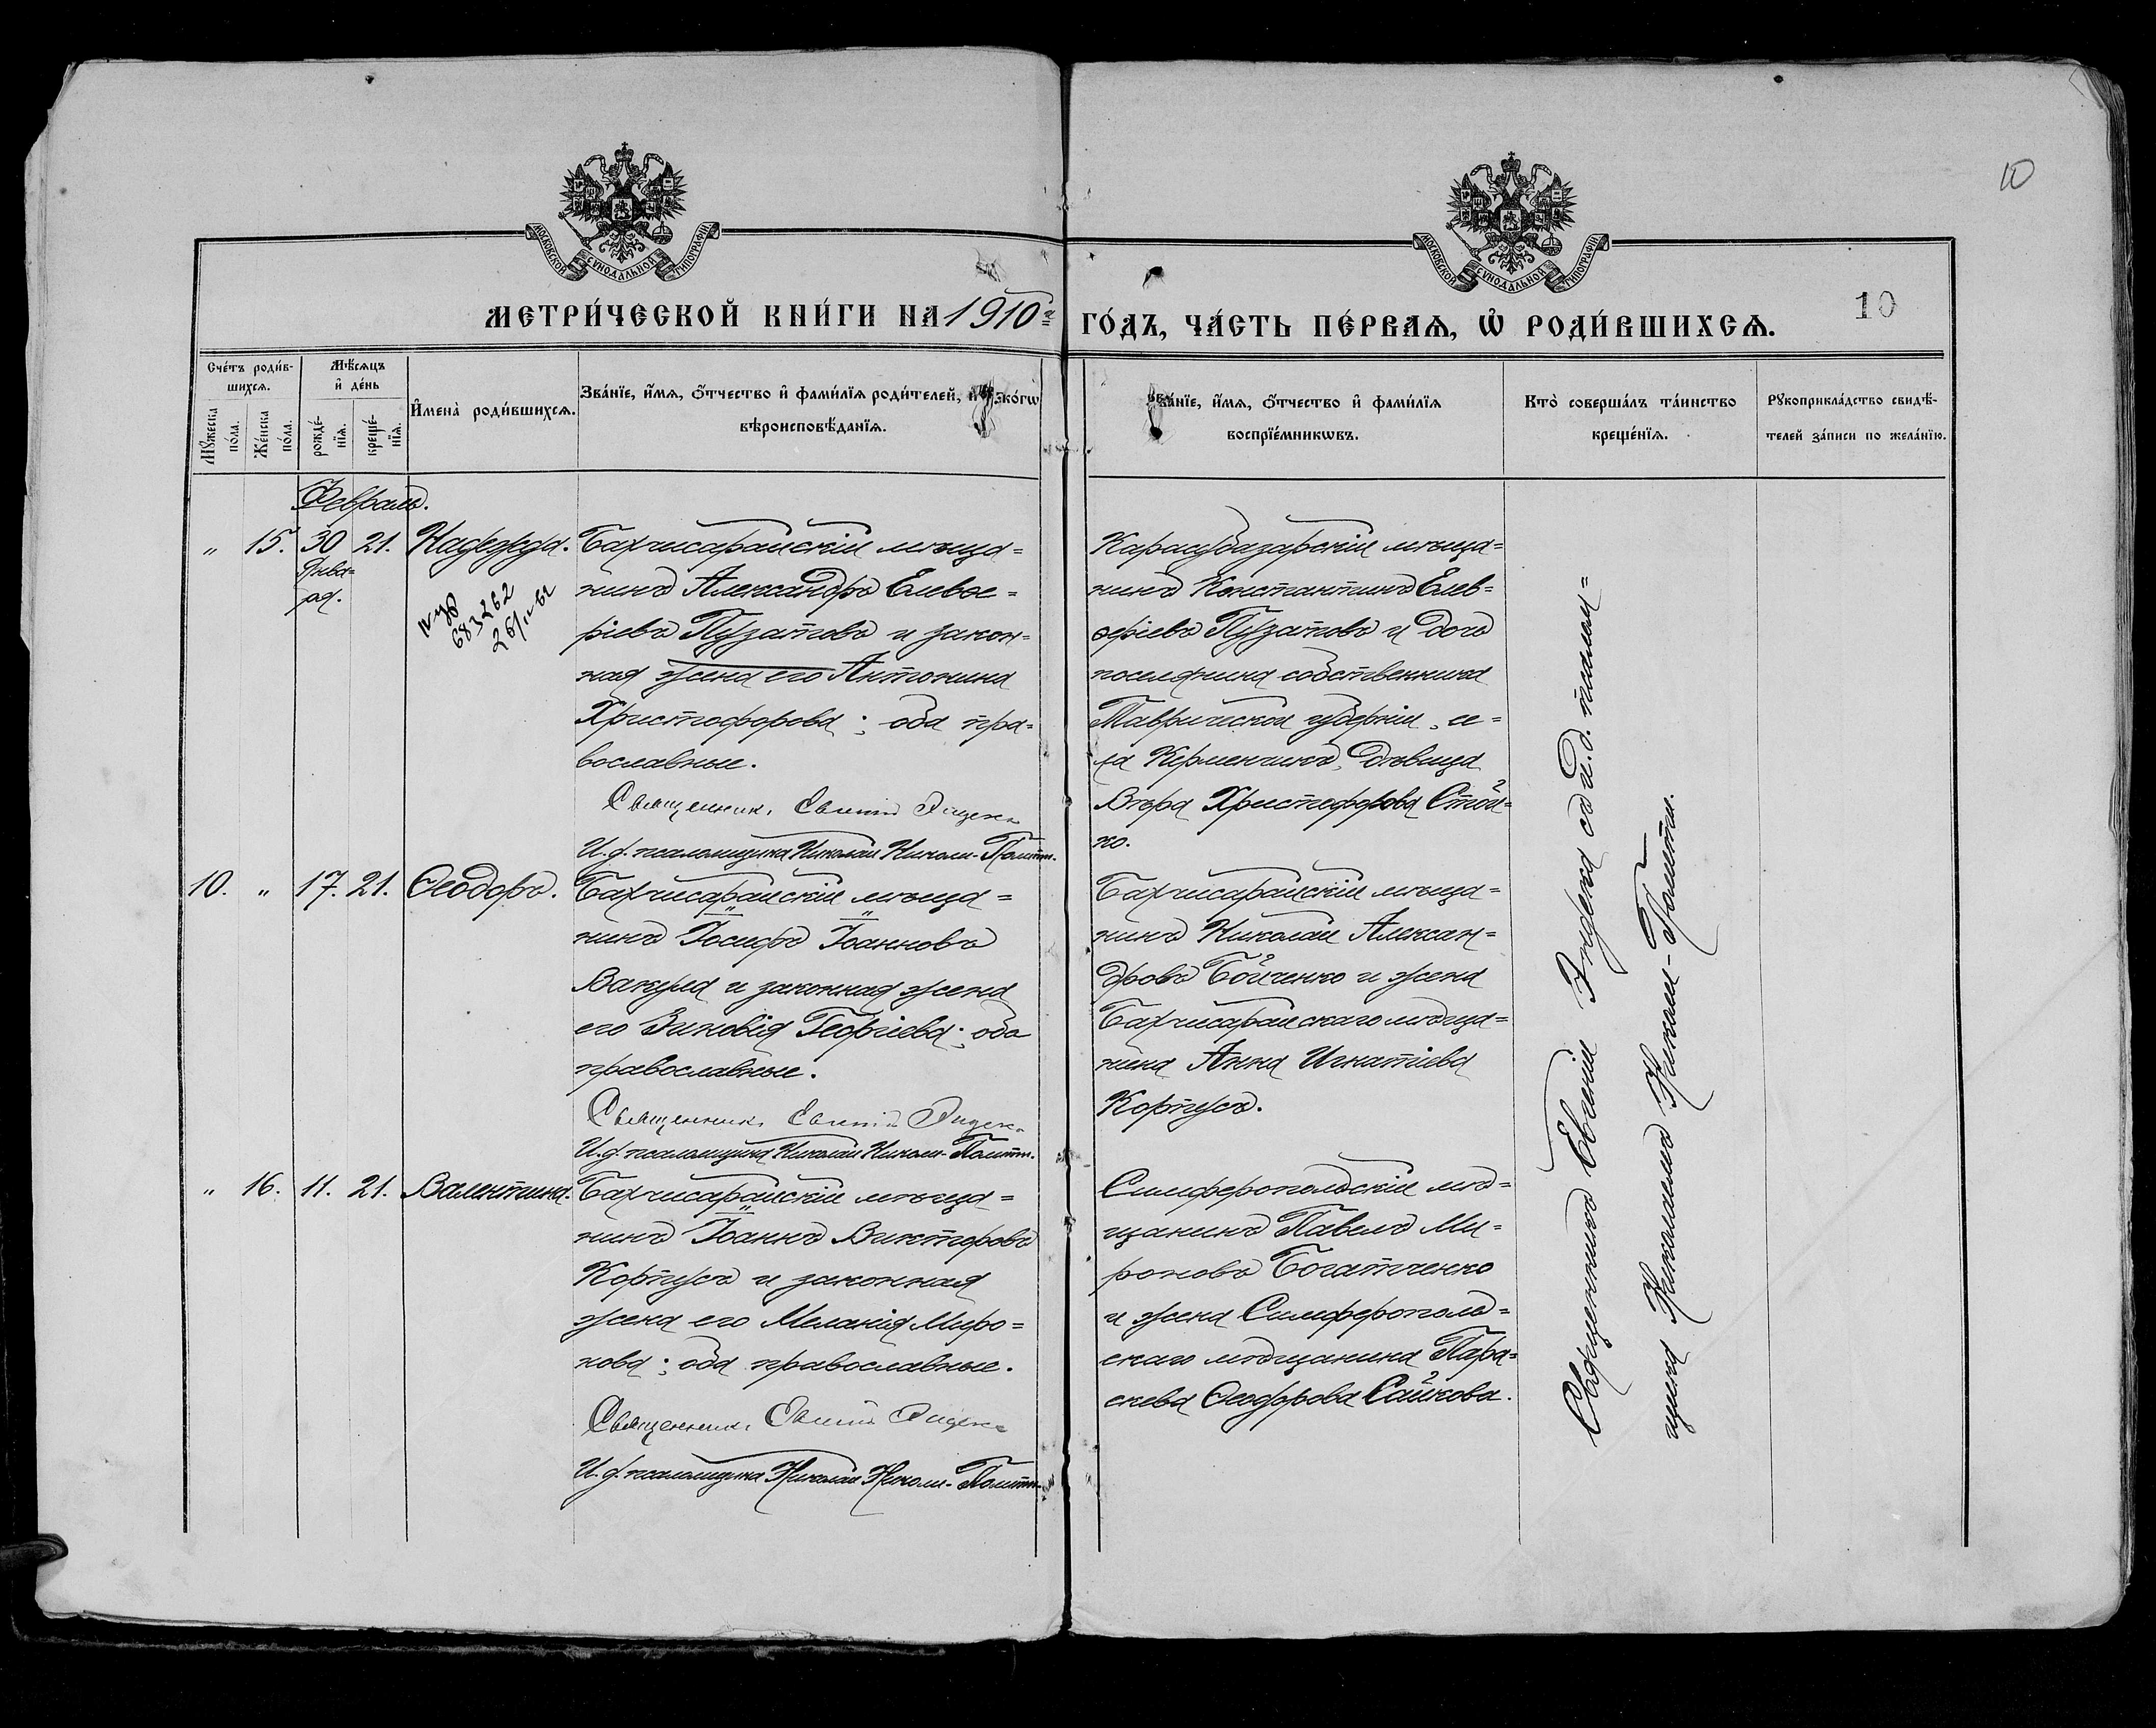 10
МОСКОВСКОЙ СѴНОДАЛЬНОЙ ТИПОГРАФІИ
МОСКОВСКОЙ СѴНОДАЛЬНОЙ ТИПОГРАФІИ
МЕТРИ́ЧЕСКОЙ КНИ́ГИ НА 1910й
ГО́ДЪ, ЧА́СТЬ ПЕ́РВАѦ, Ѡ҆ РОДИ́ВШИХСѦ.
10
Сче́тъ роди́в-
шихсѧ.
Мꙋжеска
по́ла.
Же́нска
по́ла.
Мѣ́сѧцъ
и҆ де́нь
рожде́-
нїѧ.
креще́-
нїѧ.
И҆мена̀ роди́вшихсѧ.
Зва́нїе, и҆́мѧ, ѻ҆́тчество и҆ фами́лїѧ роди́телей, и҆ како́гѡ
вѣроисповѣ́данїѧ.
Зва́нїе, и҆́мѧ, ѻ҆́тчество и҆ фами́лїѧ
воспрїе́мникѡвъ.
Кто̀ соверша́лъ та́инство
креще́нїѧ.
Рꙋкоприкла́дство свидѣ́-
телей за́писи по жела́нїю.
Февраль.
" 15. 30 21. Надежда.
Янва-
ря.
683262
Бахчисарайскій мѣща-
нинъ Александръ Елевѳе-
ріевъ Пузатовъ и закон-
ная жена его Антонина
Христофорова; оба пра-
вославные.
Священникъ Евгеній Эндека
И. д. псаломщика Николай Николи-Поитти.
Карасубазарскій мѣща-
нинъ Константинъ Елев-
ѳеріевъ Пузатовъ и дочь
поселянина собственника
Таврической губерніи, се-
ла Керменчикъ, дѣвица
Вѣра Христофорова Стой-
ко.
10. " 17. 21. Ѳеодоръ.
Бахчисарайскій мѣща-
нинъ Іосифъ Іоанновъ
Вакула и законная жена
его Зиновія Георгіева; оба
православные.
Священникъ Евгеній Эндека
И. д. псаломщика Николай Николи-Поитти.
Бахчисарайскій мѣща-
нинъ Николай Алексан-
дровъ Бойченко и жена
Бахчисарайскаго мѣща-
нина Анна Игнатіева
Корпусъ.
" 16. 11. 21. Валентина.
Бахчисарайскій мѣща-
нинъ Іоаннъ Викторовъ
Корпусъ и законная
жена его Меланія Миро-
нова; оба православные.
Священникъ Евгеній Эндека
И. д. псаломщика Николай Николи-Поитти.
Симферопольскій мѣ-
щанинъ Павелъ Ми-
роновъ Богатченко
и жена Симферополь-
скаго мѣщанина Пара-
скева Ѳеодорова Сайкова.
Священникъ Евгеній Эндека съ и. д. псалом-
щика Николаемъ Николи-Поитти.